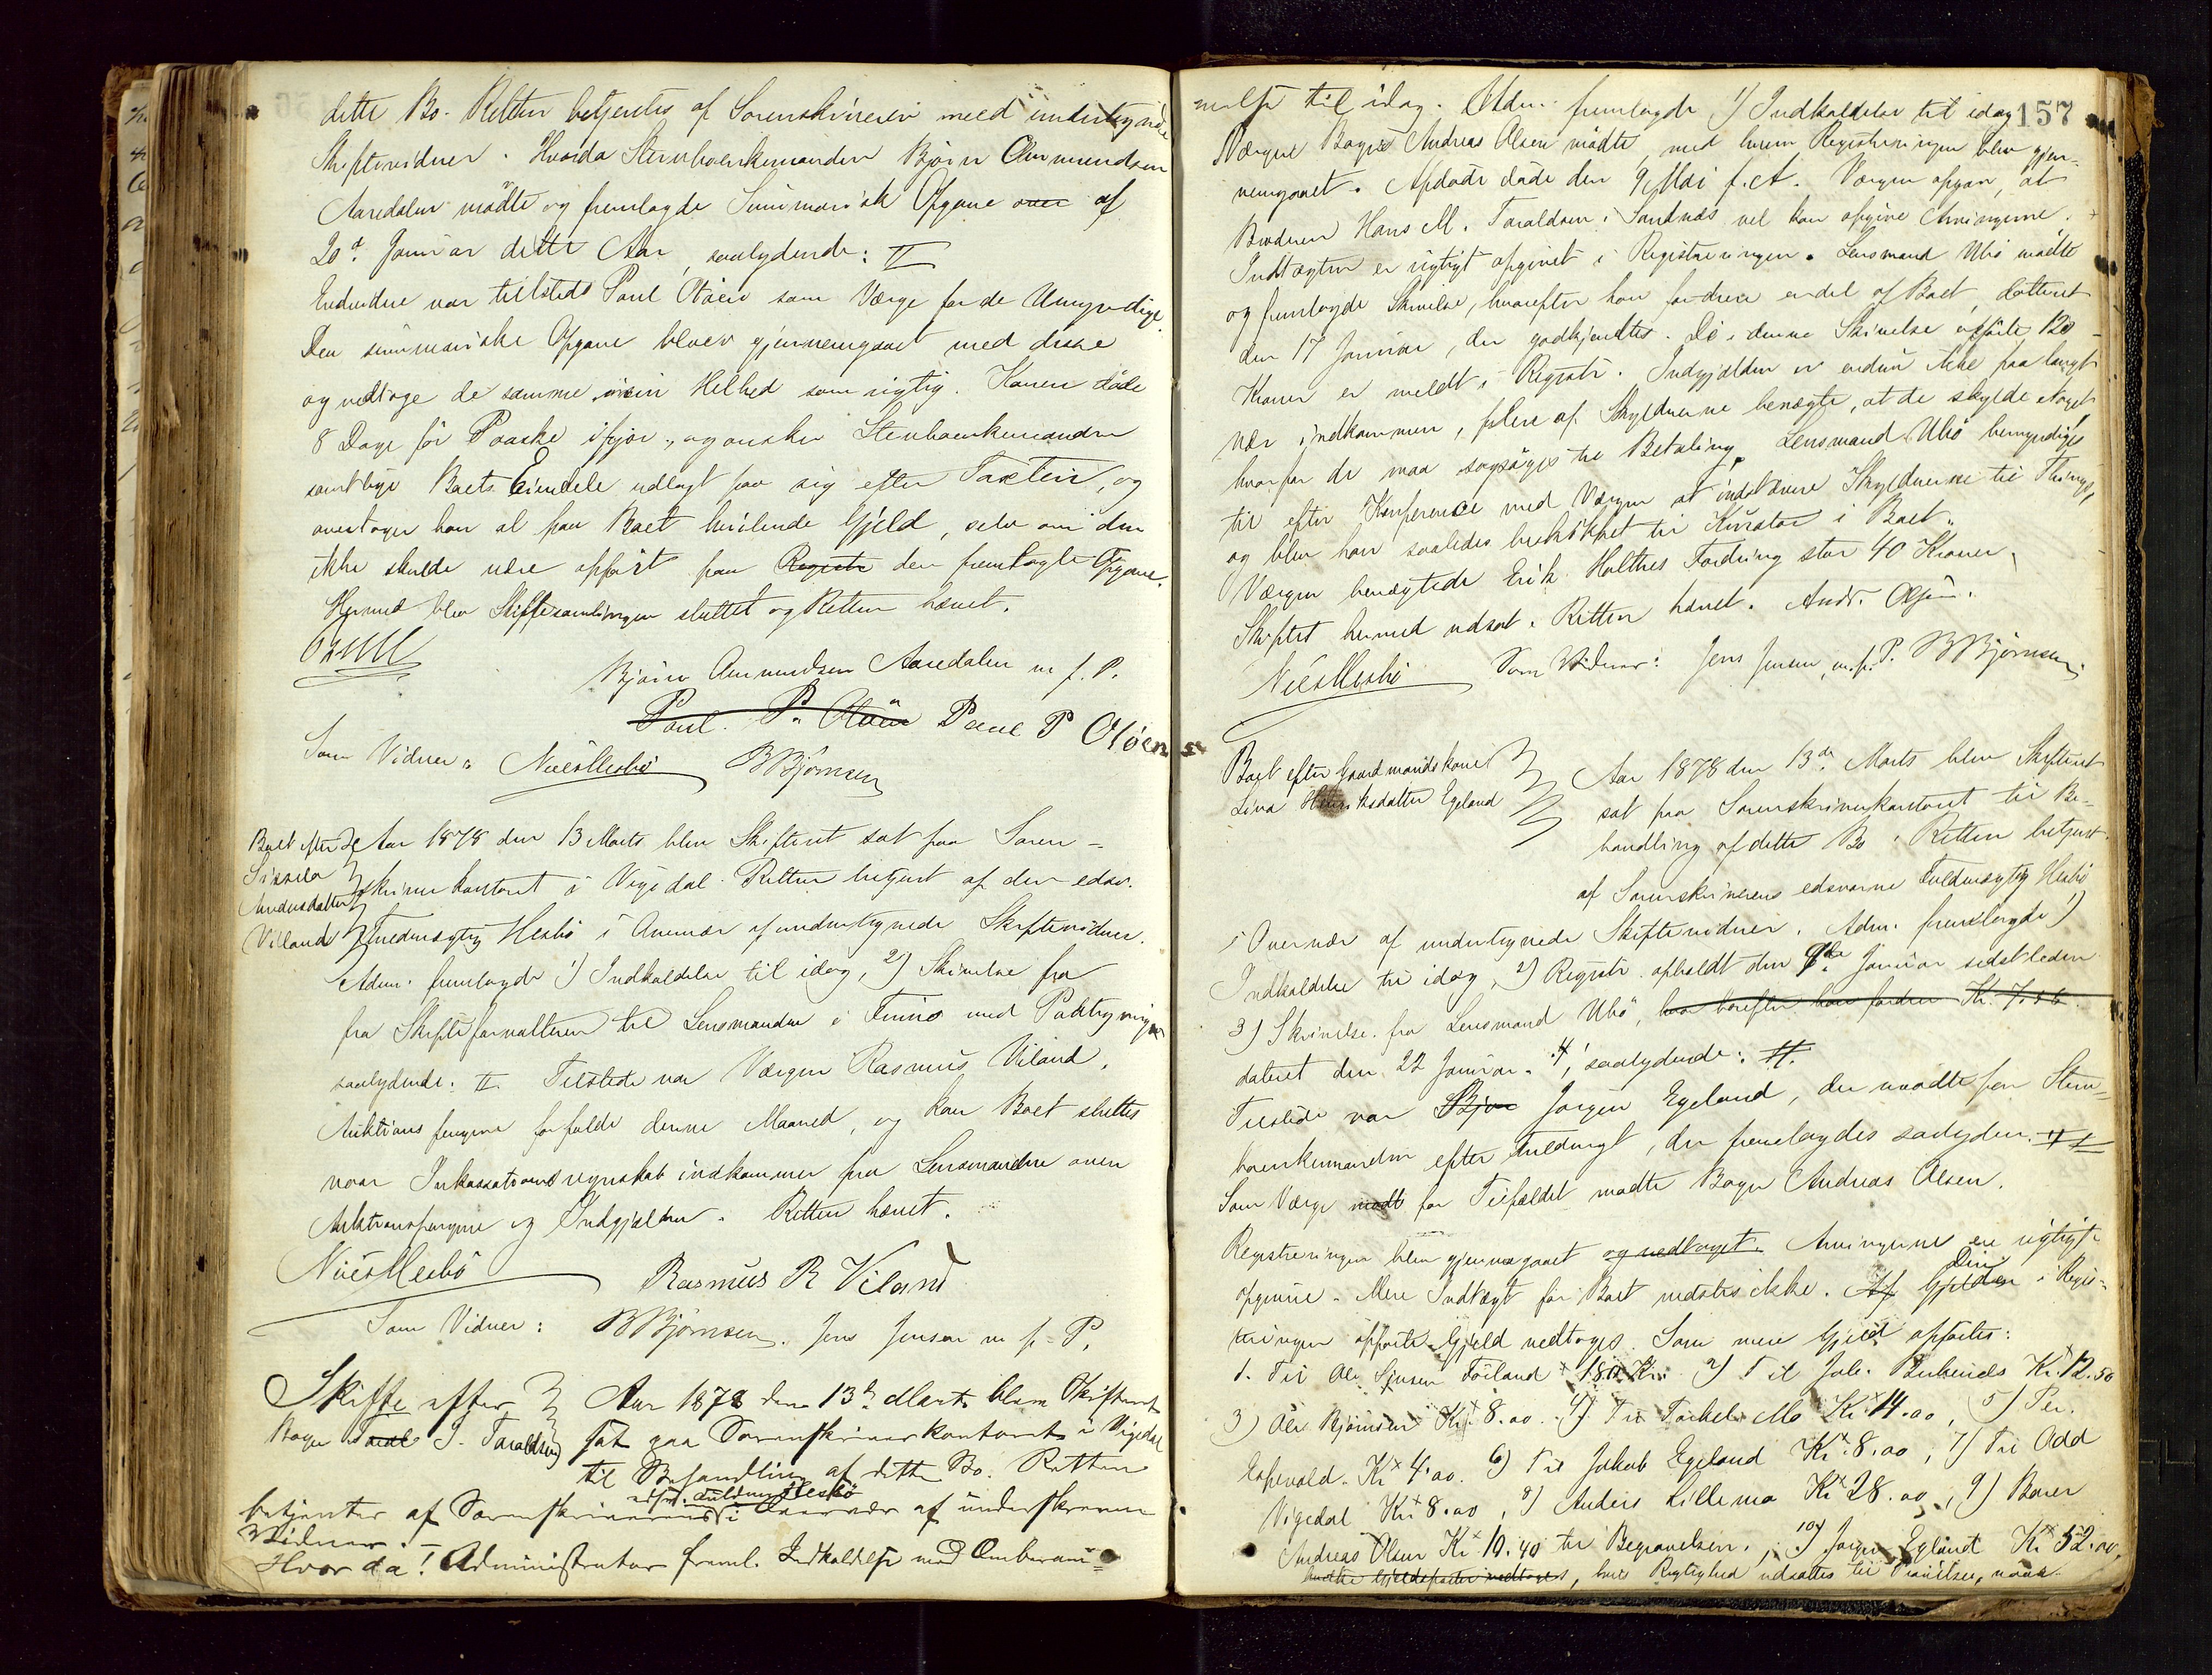 dette Bo. Retten betjentes af Sorenskriveren med undertegnede
Skiftevidner. Hvorda Stervboenkemanden Björn Aumundsen
Aaredalen mödte og fremlagde Summarisk Opgave over af
20d Januar dette Aar, saalydende: #
Endvidere var tilstede Paul Otöen som Værge for de Umyndige.
Den summariske Opgave blev gjennemgaaet med disse
og vedtoge de samme i sin Helhed som rigtig. Konen döde
8 Dage för Paaske ifjor, og ønsker Stervboenkemanden
samtlige Boets Eiendele udlagt paa sig efter Taxten, og
overtager han al paa Boet hvilende Gjeld, selv om den
ikke skulde være opfört paa Registr den fremlagte Opgave.
Hermed blev Skiftesamlingen sluttet og Retten hævet.
Björn Aumundsen Aaredalen m. f. P.
Paul P. Otöen Paul P Otöen
Som Vidner: Niels Hesbö BBjörnsen
Boet efter
Sissela
Andersdatter
Viland
Aar 1878 den 13 Marts blev Skifteret sat paa Soren-
skriverkontoret i Vigedal. Retten betjent af den edsv.
Fuldmægtig Hesbö i Overvær af undertegnede Skiftevidner.
Adm. fremlagde 1) Indkaldelse til idag, 2) Skrivelse fra
fra Skifteforvalteren til Lensmanden i Finnö med Paategning
saalydende: # Tilstede var Værgen Rasmus Viland.
Auktionspengene forfalde denne Maaned, og kan Boet sluttes
naar Inkassationsregnskab indkommer fra Lensmanden over
Auktionspengene og Indgjælden. Retten hævet.
Niels Hesbö Rasmus R Viland
Som Vidner: BBjörnsen. Jens Jensen m. f. P.
Skifte efter
Bager T. Taraldsen
Aar 1878 den 13d Marts blev Skifteret
sat paa Sorenskriverkontoret i Vigedal
til Behandling af dette Bo. Retten
edsv. Fuldm. Hesbö
betjentes af Sorenskriverens i Overvær af underskrevne
Vidner:-
Hvor da! Administrator freml. Indkaldelse med Omberam-
157
melse til idag. Adm. fremlagde 1) Indkaldelse til idag
Værgen Bager Andreas Olsen mödte, med hvem Registreringen blev gjen-
nemgaaet. Afdöde döde den 9 Mai f. A. Værgen opgav, at
Broderen Hans M. Taraldsen i Sandnæs vel kan opgive Arvingerne.
Indtægten er rigtigt opgivet i Registreringen. Lensmand Ubö mödte
og fremlagde Skrivelse, hvorefter han fordrer endel af Boet, dateret
den 17 Januar, der godkjendtes. De i denne Skrivelse opförte 120
Kroner er meldt i Registr. Indgjælden er endnu ikke paa langt
nær indkommen, flere af Skyldnerne benægte, at de skylde Noget
hvorfor de maa sagsöges til Betaling. Lensmand Ubö bemyndiges
til efter Konference med Værgen at indstævne Skyldnerne til Thinge,
og blev han saaledes beskikket til Kurator i Boet.
Værgen benægtede Erik Holthes Fordring stor 40 Kroner.
Skiftet hermed udsat. Retten hævet. Andr. Olsen.
Niels Hesbö Som Vidner: Jens Jensen, m. f. P. BBjörnsen.
Boet efter Gaardmandskone
Lina Henriksdatter Egeland
Aar 1878 den 13de Marts blev Skifteret
sat paa Sorenskriverkontoret til Be-
handling af dette Bo. Retten betjent
af Sorenskriverens edsvorne Fuldmægtig Hesbö
i Overvær af undertegnede Skiftevidner. Adm. fremlagde 1)
Indkaldelse til idag, 2) Registr. afholdt den 9de Januar sidstleden
3) Skrivelse fra Lensmand Ubö, hvorefter han fordrer Kr. 7.56.
dateret den 22 Januar. 4, saalydende: #.
Tilstede var Bjør Jörgen Egeland, der mødte for Sterv-
boenkemanden efter Fuldmagt, der fremlagdes saalyden. ##
Som Værge mødt for Tilfældet mødte Bager Andreas Olsen.
Registreringen blev gjennegaaet og vedtaget. Arvingerne ere rigtigt
opgivne. Mere Indtægt for Boet vedstes ikke. Af Gjelden Den i Regis-
treringen opförte Gjeld vedtoges. Som mere Gjeld opförtes:
1. Til Ole Sjursen Töiland 180 Kr. 2) Til Joh. Kr. 12.50
3) Ole Björnsen Kr. 8.00. 4) Til Torkel Mo Kr. 14.00, 5) Per.
Espevold. Kr. 4.00. 6) Til Jakob Egeland Kr. 8.00, 7) Til Odd
Vigedal Kr. 8.00, 8) Anders Lillemo Kr 28.00, 9) Bager
Andreas Olsen Kr. 10.40 til Begravelsen., 10) Jörgen Egeland Kr. 52.00,
hvilke Gjeldsposter vedtoges, hvis Rigtighed udsattes til Prövelse, naar